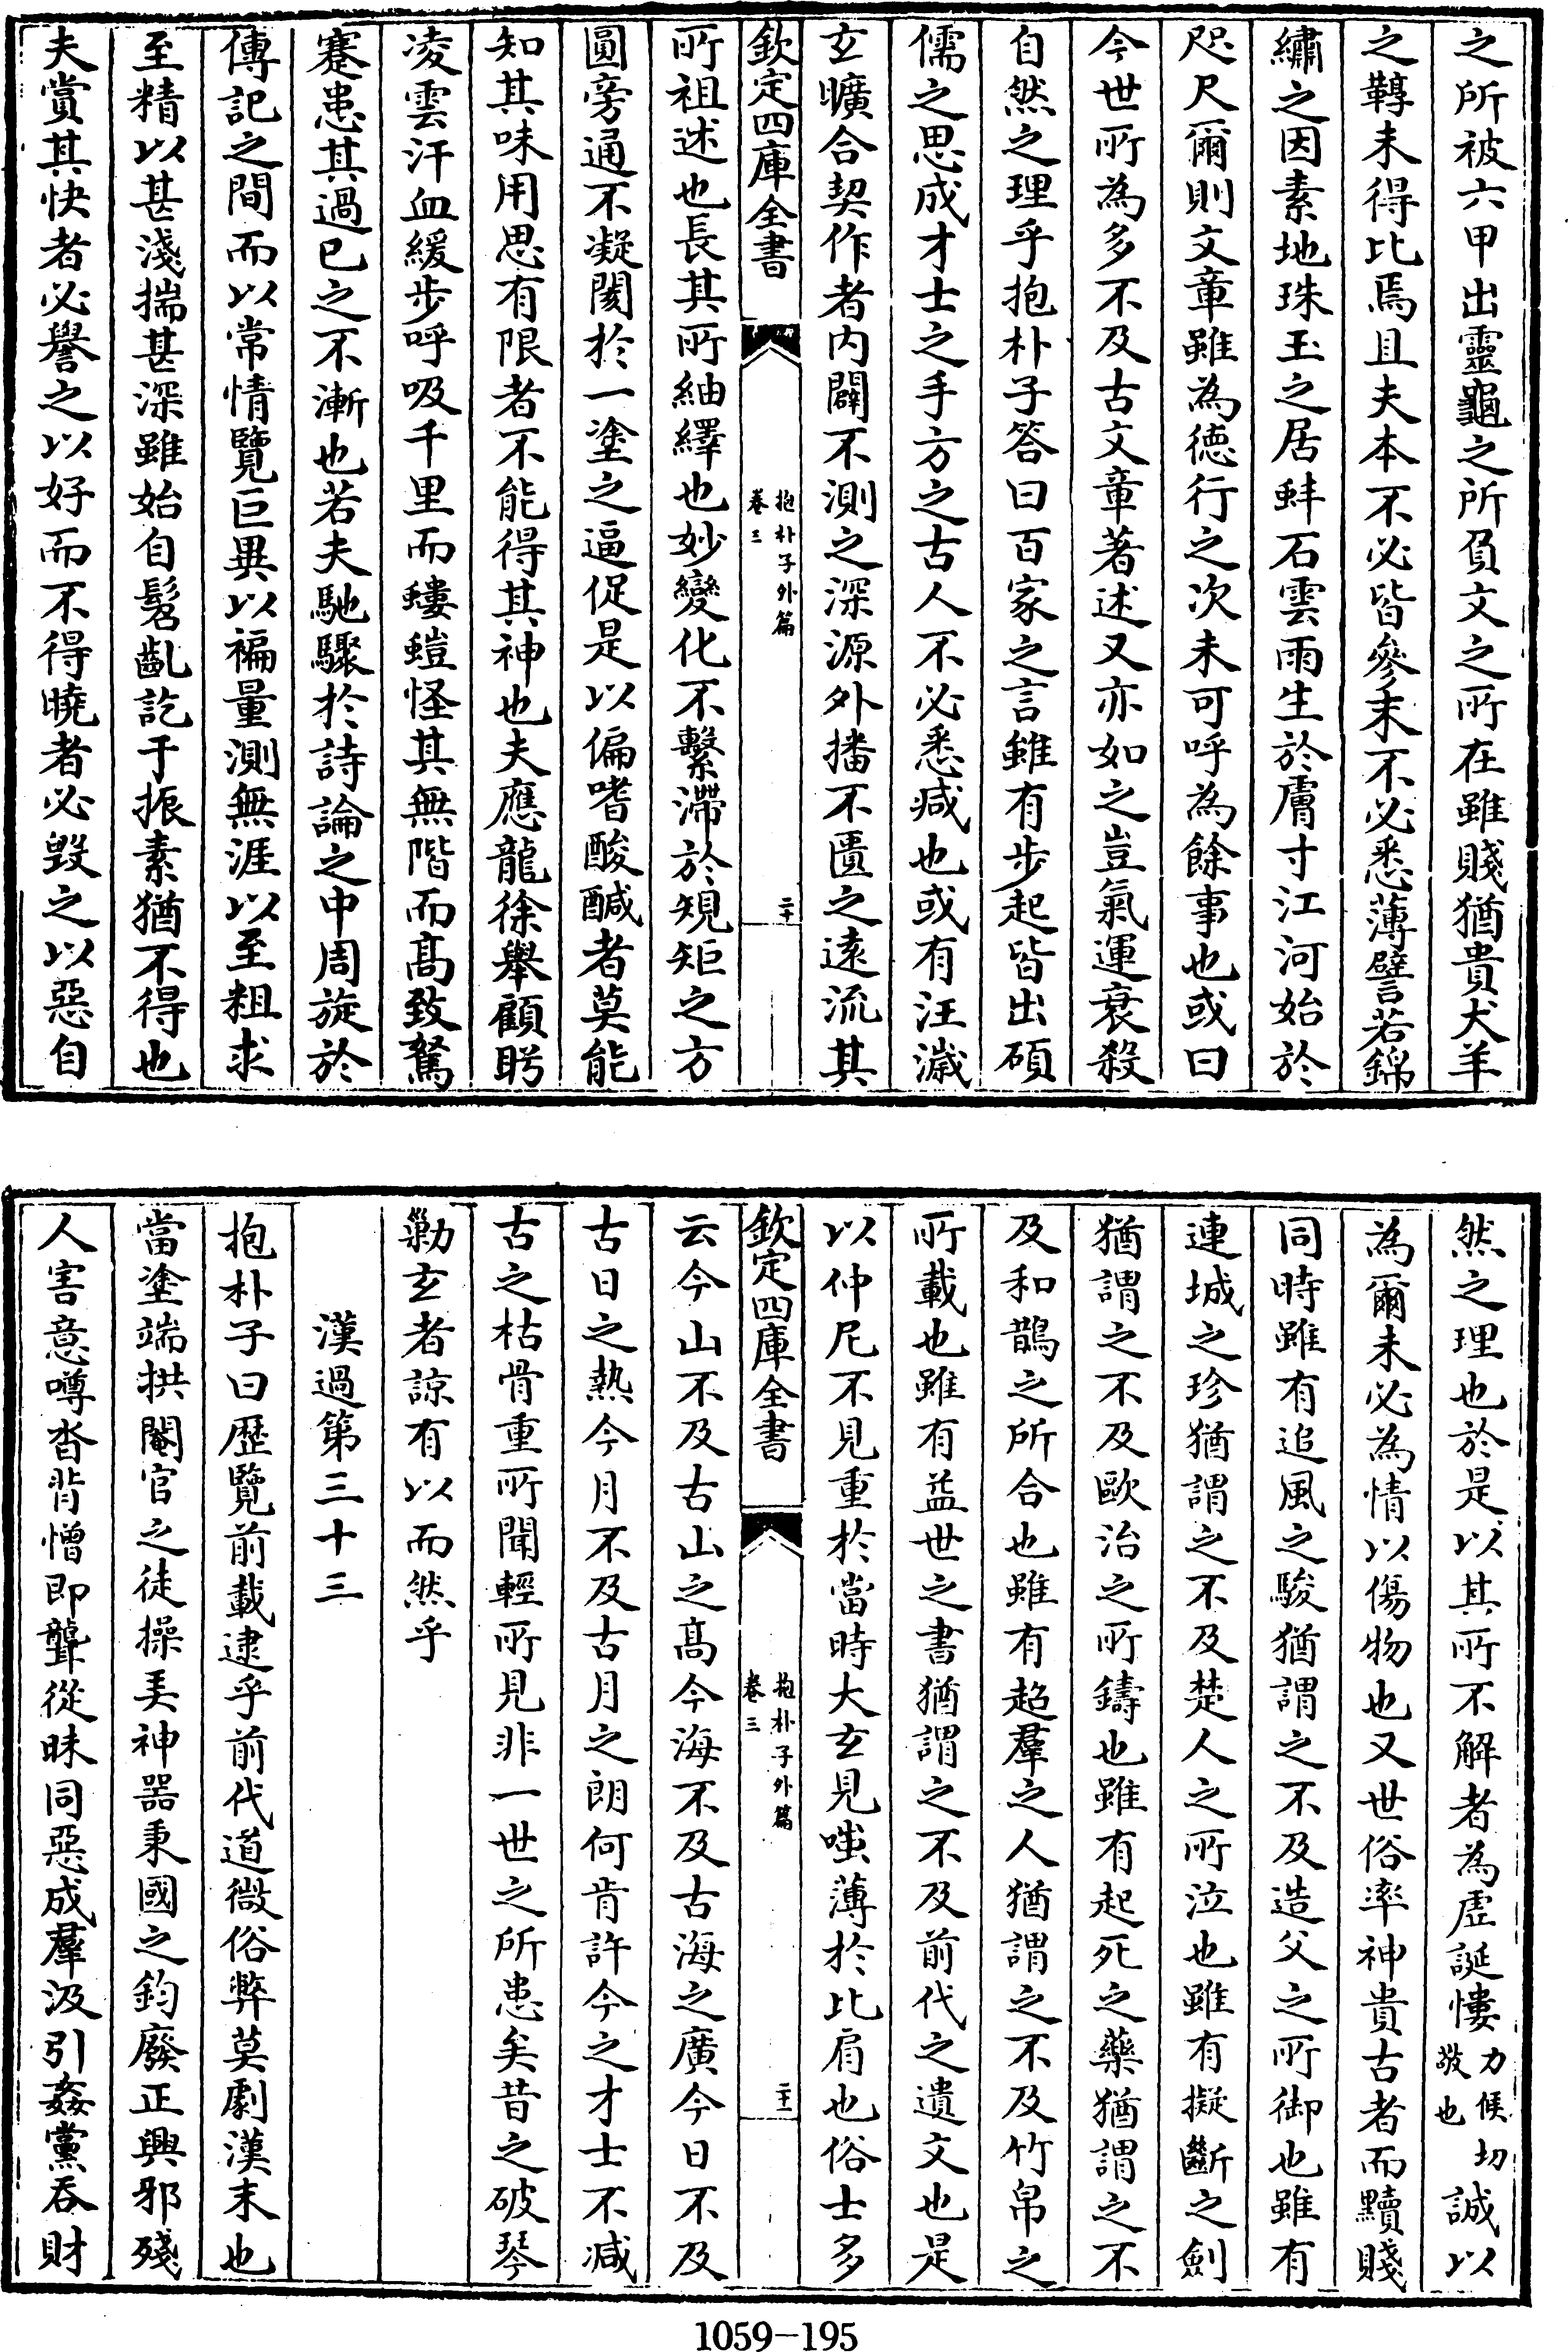 之所被六甲出靈龜之所負文之所在雖賤猶貴犬羊
之鞟未得比焉且夫本不必皆參末不必悉薄譬若錦
繡之因素地珠玉之居蚌石雲雨生於膚寸江河始於
咫尺爾則文章雖為徳行之次未可呼為餘事也或曰
今世所為多不及古文章著述又亦如之豈氣運衰殺
自然之理乎抱朴子答曰百家之言雖有步起皆出碩
儒之思成才士之手方之古人不必悉减也或有汪濊
玄曠合契作者内闢不測之深源外播不匱之逺流其
欽定四庫全書
抱朴子外篇
卷三
二十
所祖述也長其所紬繹也妙變化不繫滯於規矩之方
圓旁通不凝閡於一塗之逼促是以偏嗜酸醎者莫能
知其味用思有限者不能得其神也夫應龍徐舉顧眄
凌雲汗血緩步呼吸千里而螻螘怪其無階而髙致駑
蹇患其過已之不漸也若夫馳驟於詩論之中周旋於
傳記之間而以常情覽巨異以褊量測無涯以至粗求
至精以甚淺揣甚深雖始自髫齓訖于振素猶不得也
夫賞其快者必譽之以好而不得曉者必毁之以惡自
然之理也於是以其所不解者為虛誕慺力候切敬也誠以
為爾未必為情以傷物也又世俗率神貴古者而黷賤
同時雖有追風之駿猶謂之不及造父之所御也雖有
連城之珍猶謂之不及楚人之所泣也雖有擬斷之劍
猶謂之不及歐冶之所鑄也雖有起死之藥猶謂之不
及和鵲之所合也雖有超羣之人猶謂之不及竹帛之
所載也雖有益世之書猶謂之不及前代之遺文也是
以仲尼不見重於當時大玄見嗤薄於比肩也俗士多
欽定四庫全書
抱朴子外篇
卷三
二十一
云今山不及古山之髙今海不及古海之廣今日不及
古日之熱今月不及古月之朗何肯許今之才士不减
古之枯骨重所聞輕所見非一世之所患矣昔之破琴
勦玄者諒有以而然乎
漢過第三十三
抱朴子曰歴覽前載逮乎前代道微俗弊莫劇漢末也
當塗端拱閹官之徒操弄神器秉國之鈞廢正興邪殘
人害意噂沓背憎即聾從昧同惡成羣汲引姦黨吞財
1059-195